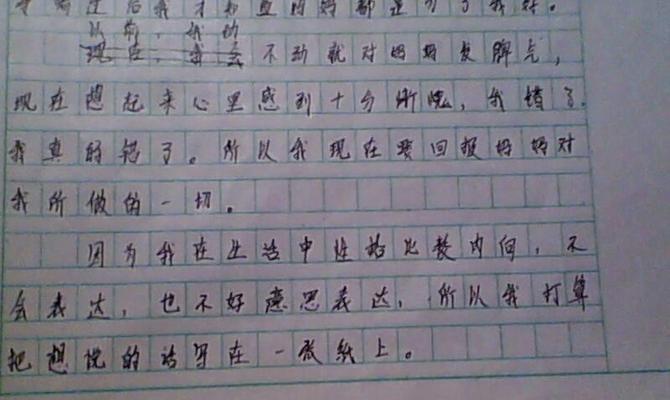 我才知道妈妈都是为了我好。
以前，我动
现在，我会不动就对妈妈发脾气，
现在想起来心里感到十分惭愧，我错了。
我真的错了。所以我现在要回报妈妈对
我所做的一切。
因为我在生活中性格比较内向，不
会表达，也不好意思表达，所以我打算
把想说的话写在一张纸上。